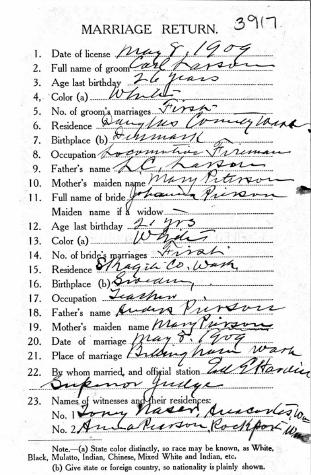 3917.
MARRIAGE RETURN.
1. Date of license May 8, 1909
2. Full name of groom Carl Larson
3. Age last birthday 26 years
4. Color (a) White
5. No. of groom's marriages First
6. Residence Douglas County Wash
7. Birthplace (b) Denmark
8. Occupation Locomotive Fireman
9. Father's name L.C. Larson
10. Mother's maiden name Mary Peterson
11. Full name of bride Johanna Pierson
Maiden name if a widow —
12. Age last birthday 21 yrs
13. Color (a) White
14. No. of bride's marriages First
15. Residence Skagit Co. Wash
16. Birthplace (b) Sweden
17. Occupation Teacher
18. Father's name Anders Pierson
19. Mother's maiden name Mary Pierson
20. Date of marriage May 8, 1909
21. Place of marriage Bellingham Wash
22. By whom married, and official station Ed E Hardin
Superior Judge
23. Names of witnesses and their residences:
No. 1 Tony Anacortes, Wn
No. 2 Anna Pierson Rockport Wn
Note.—(a) State color distinctly, so race may be known, as White,
Black, Mulatto, Indian, Chinese, Mixed White and Indian, etc.
(b) Give state or foreign country, so nationality is plainly shown.